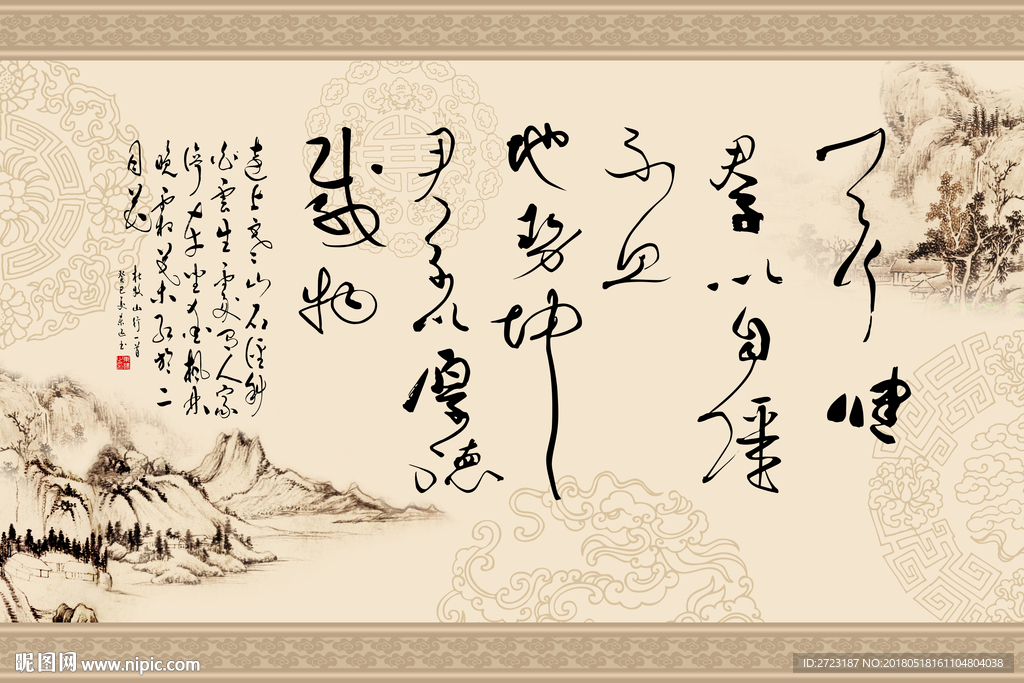 天行健
君子以自強
不息
地勢坤
君子以厚德
載物
遠上寒山石徑斜
白雲生處有人家
停車坐愛楓林
晚霜葉紅於二
月花
杜牧山行一首
癸巳夏
昵图网 www.nipic.com
ID:2723187 NO:20180518161104804038